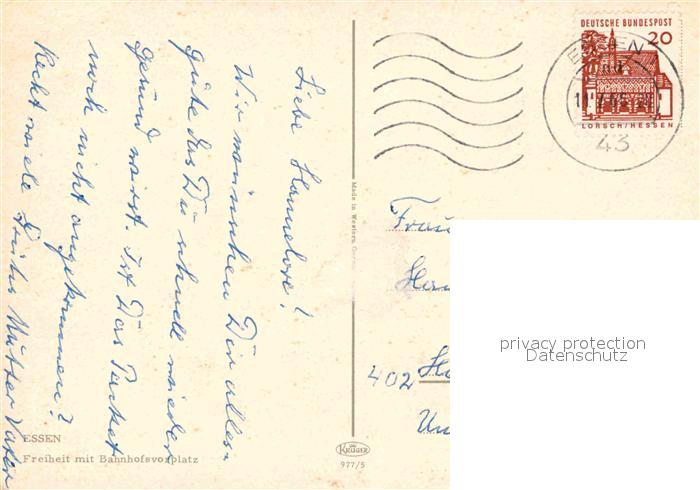 Liebe Hannelore!
Wir wünschen Dir alles
gute das Du schnell wieder
gesund wirst. Ist Das Packet
noch nicht angekommen?
Recht viele Mutter Vater
ESSEN
Freiheit mit Bahnhofsvorplatz
Made in Western
KRÜGER
977/5
DEUTSCHE BUNDESPOST
20
LORSCH/HESSEN
ESSEN
43
Frau
402
privacy protection
Datenschutz